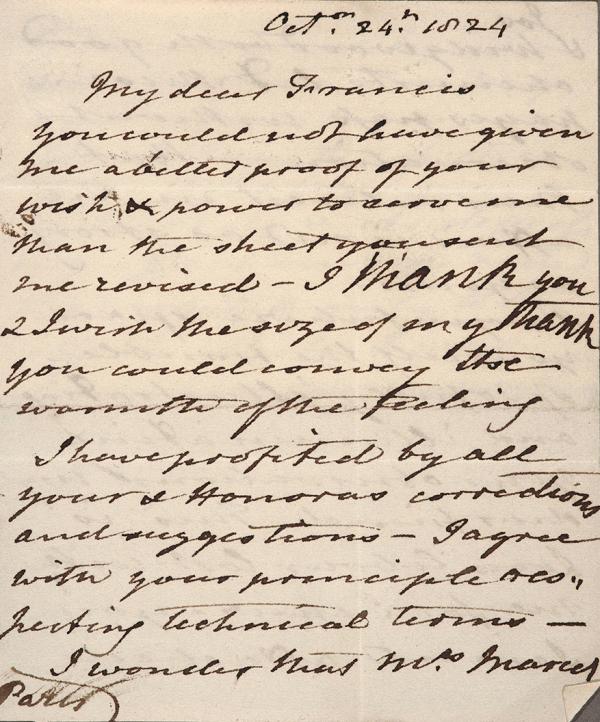 Oct.r 24.th 1824
My dear Francis
you could not have given
me a better proof of your
wish & power to serve me
than the sheet you sent
me revised - I thank you
& I wish the size of my thank
you could convey the
warmth of the feeling
I have profited by all
your & Honoras corrections
and suggestions - I agree
with your principle res,,
pecting technical terms -
I wonder that Mrs Marcet